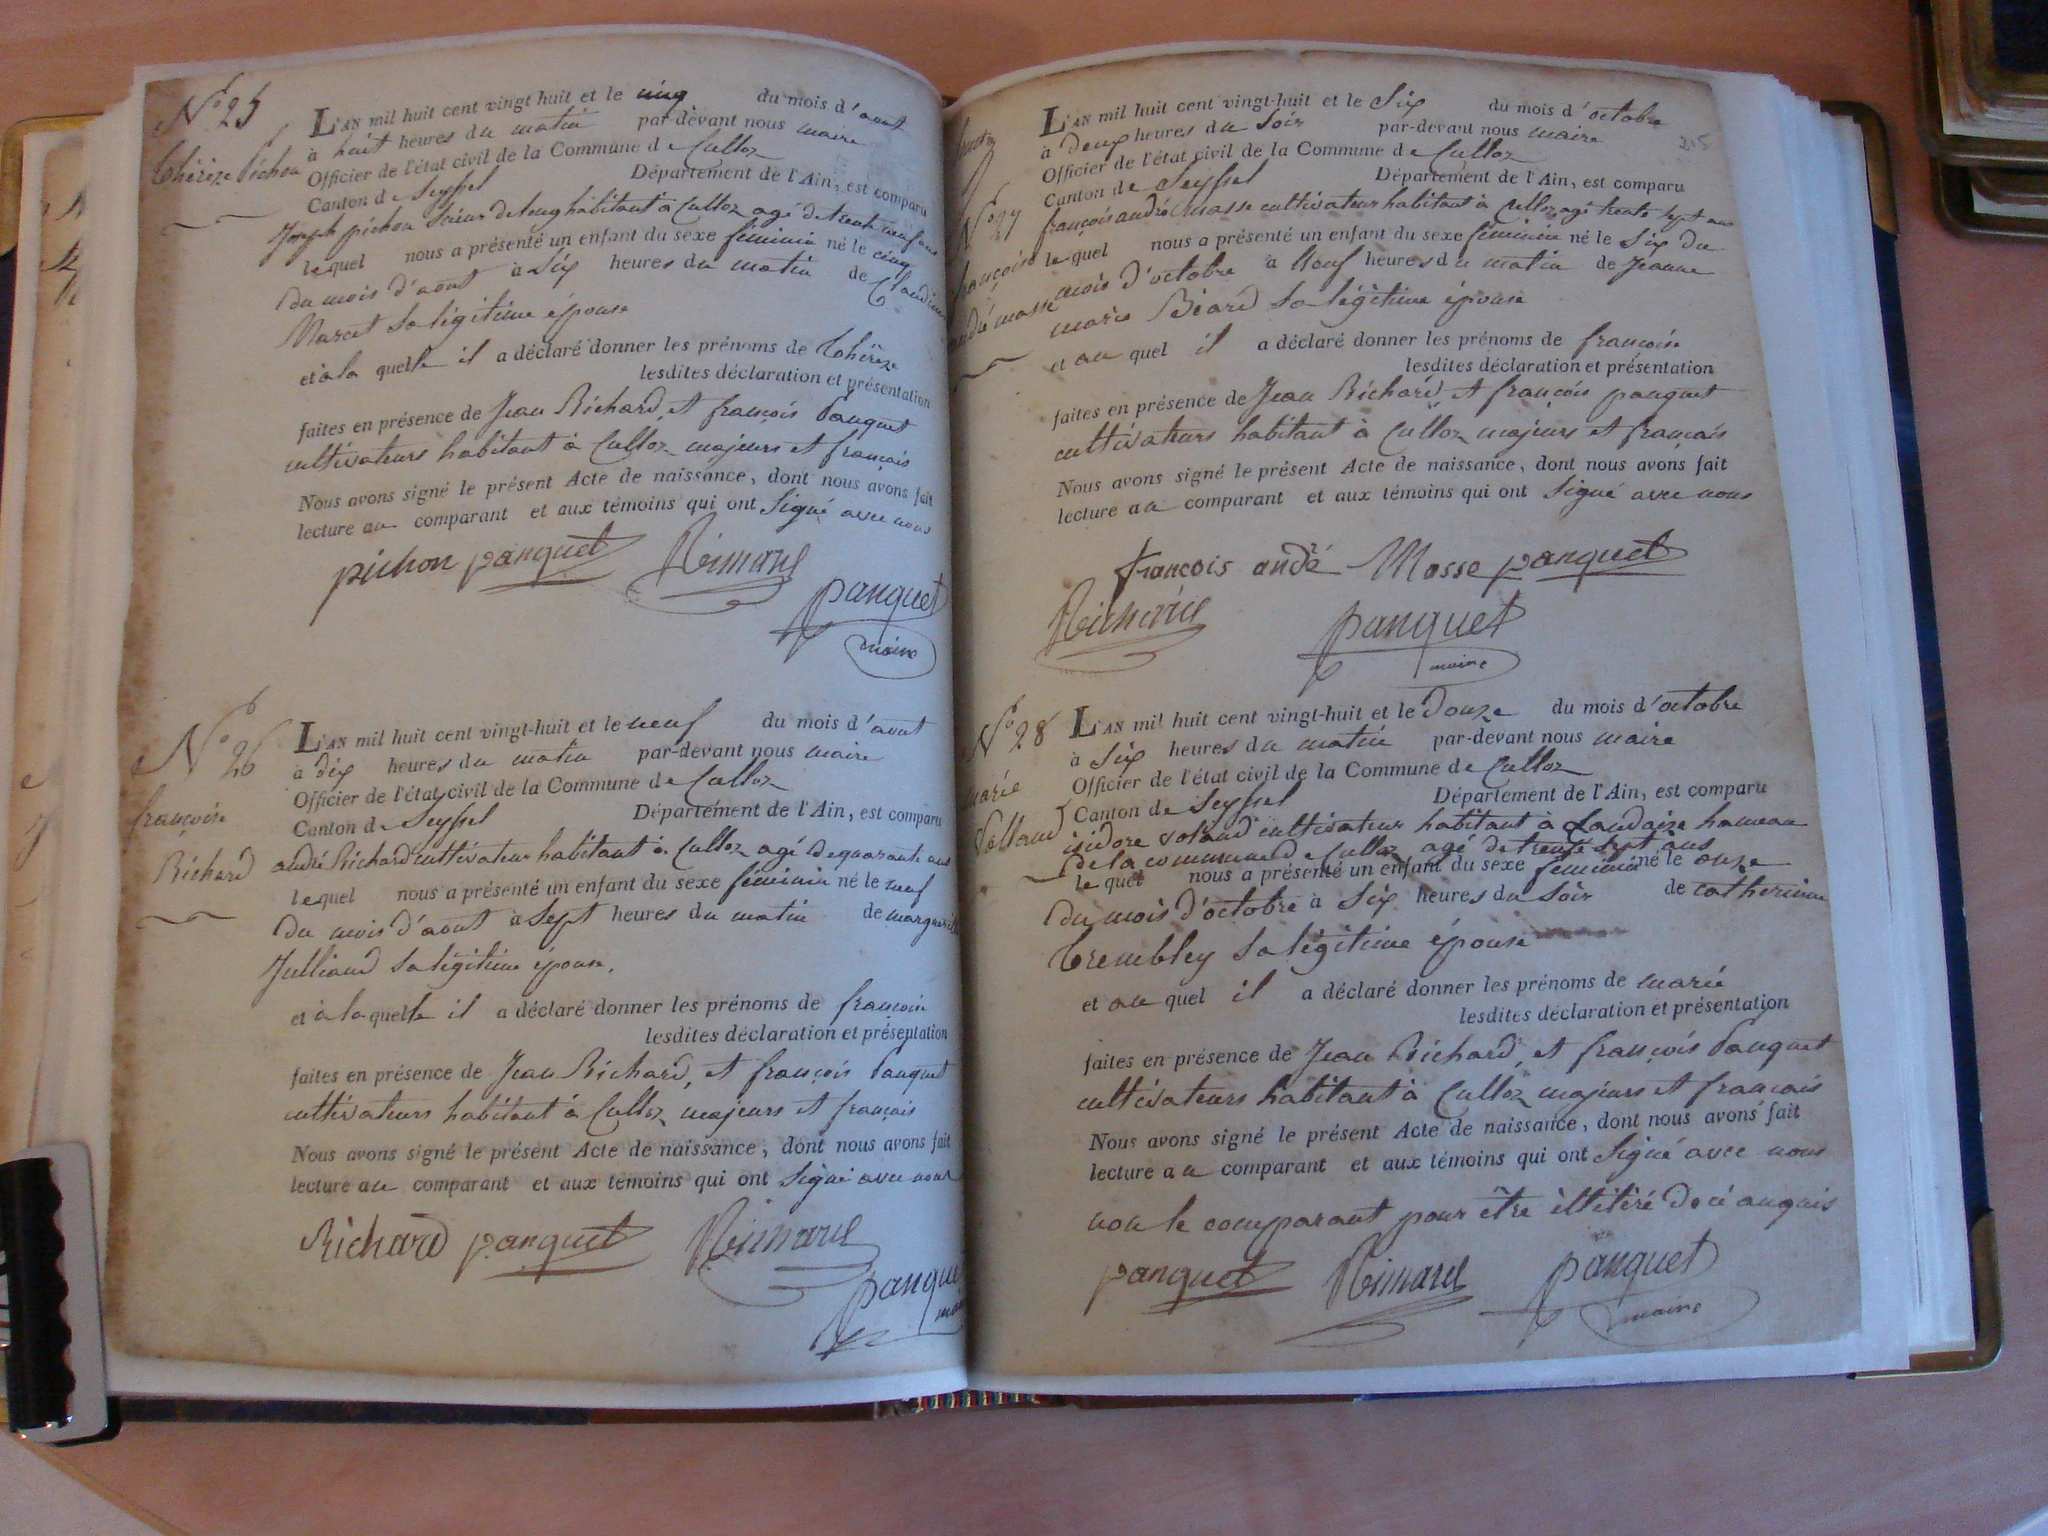 N.º 25
Thérèze Pichon
L'AN mil huit cent vingt huit et le cinq du mois d'aout
à huit heures du matin par-devant nous maire
Officier de l'état civil de la Commune de Culloz
Canton de Seyssel Département de l'Ain, est comparu
Joseph pichon habitant à Culloz agé de trente neuf ans
lequel nous a présenté un enfant du sexe féminin né le cinq
du mois d'aout à six heures du matin de Claudine
Marcet sa légitime épouse
et à la quelle il a déclaré donner les prénoms de Thérèze
lesdites déclaration et présentation
faites en présence de Jean Richard, et françois Panquet
cultivateurs habitant à Culloz majeurs et français
Nous avons signé le présent Acte de naissance, dont nous avons fait
lecture au comparant et aux témoins qui ont signé avec nous
pichon panquet Richard
panquet
maire
N.º 26
françoise
Richard
L'AN mil huit cent vingt-huit et le neuf du mois d'aout
à dix heures du matin par-devant nous maire
Officier de l'état civil de la Commune de Culloz
Canton de Seyssel Département de l'Ain, est comparu
andré Richard cultivateur habitant à Culloz agé de quarante ans
lequel nous a présenté un enfant du sexe féminin né le neuf
du mois d'aout à sept heures du matin de marguerite
Julliand sa légitime épouse.
et à la quelle il a déclaré donner les prénoms de françoise
lesdites déclaration et présentation
faites en présence de Jean Richard, et françois Panquet
cultivateurs habitant à Culloz majeurs et français
Nous avons signé le présent Acte de naissance, dont nous avons fait
lecture au comparant et aux témoins qui ont signé avec nous
Richard panquet Richard
panquet
215
N.º 27
françoise
andré masse
L'AN mil huit cent vingt-huit et le six du mois d'octobre
à deux heures du soir par-devant nous maire
Officier de l'état civil de la Commune de Culloz
Canton de Seyssel Département de l'Ain, est comparu
françois andré masse cultivateur habitant à Culloz agé trente sept ans
lequel nous a présenté un enfant du sexe féminin né le six du
mois d'octobre à neuf heures du matin de Jeanne
marie Béard sa légitime épouse
et au quel il a déclaré donner les prénoms de françoise
lesdites déclaration et présentation
faites en présence de Jean Richard, et françois panquet
cultivateurs habitant à Culloz majeurs et français
Nous avons signé le présent Acte de naissance, dont nous avons fait
lecture au comparant et aux témoins qui ont signé avec nous
françois andé Masse panquet
Richard panquet
maire
N.º 28
marie
Volland
L'AN mil huit cent vingt-huit et le douze du mois d'octobre
à six heures du matin par-devant nous maire
Officier de l'état civil de la Commune de Culloz
Canton de Seyssel Département de l'Ain, est comparu
isidore voland cultivateur habitant à Landaize hameau
de la commune de Culloz agé de trente sept ans
lequel nous a présenté un enfant du sexe féminin né le onze
du mois d'octobre à six heures du soir de catherinne
Trembley sa légitime épouse
et au quel il a déclaré donner les prénoms de marie
lesdites déclaration et présentation
faites en présence de Jean Richard, et françois Panquet
cultivateurs habitant à Culloz majeurs et français
Nous avons signé le présent Acte de naissance, dont nous avons fait
lecture au comparant et aux témoins qui ont signé avec nous
non le comparant pour être illitéré de ce anquis
panquet Richard panquet
maire